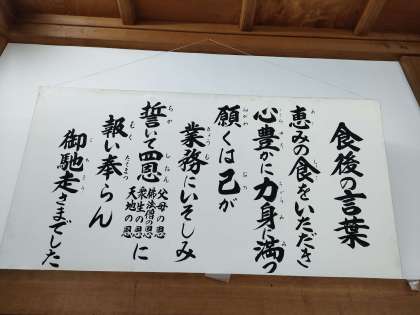 食後の言葉
恵みの食をいただき
心豊かに力身に満つ
願くは己が
業務にいそしみ
誓いて四恩に
父母の恩
佛法僧の恩
衆生の恩
天地の恩
報い奉らん
御馳走さまでした